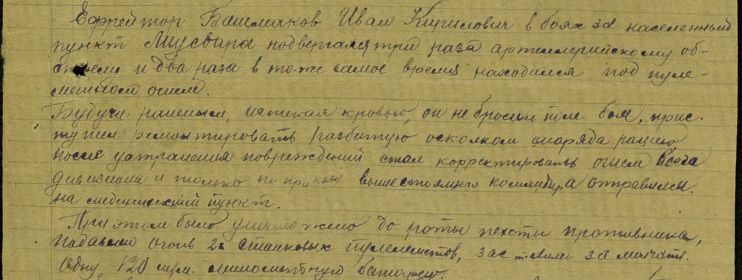 Ефрейтор Башмаков Иван Кирилович в боях за населенный
пункт подвергался три раза артиллерийскому об-
стрелу и два раза в то-же самое время находился под пуле-
метным огнем.
Будучи раненым, истекая кровью, он не бросил поле боя, прис-
тупил ремонтировать разбитую осколком снаряда рацию
После устранения повреждений стал корректировать огнем всего
дивизиона и только по приказу вышестоящего командира отправился
на медицинский пункт.
При этом было уничтожено до роты пехоты противника,
подавлен огонь 2х станковых пулеметов, заставили замолчать
одну 120 м.м. минометную батарею.